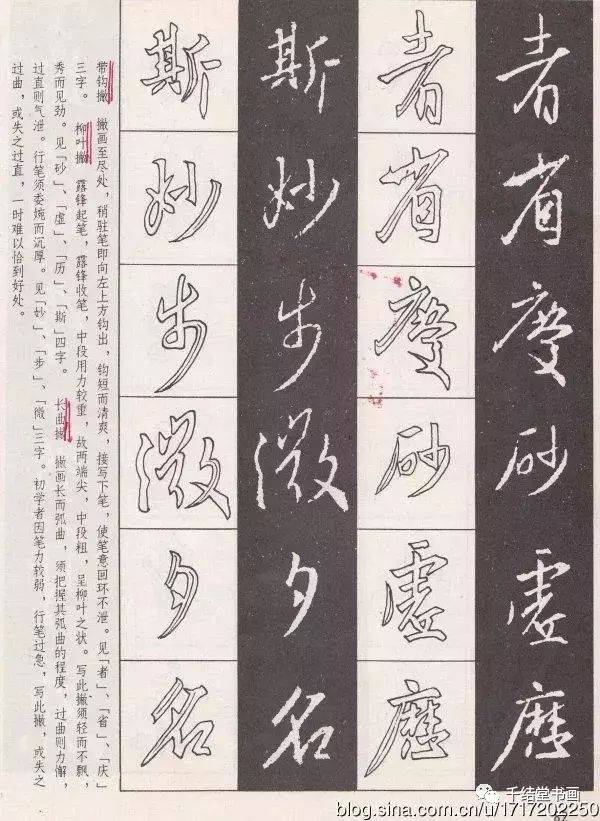 者省慶砂虛歷
者省慶砂虛歷
斯妙步微夕名
斯妙步微夕名
带钩撇 撇画至尽处，稍驻笔即向左上方钩出，钩短而清爽，接写下笔，使笔意回环不泄。见「者」、「省」、「庆」
三字。 柳叶撇 露锋起笔，露锋收笔，中段用力较重，故两端尖，中段粗，呈柳叶之状。写此撇须轻而不飘，
秀而见劲。见「砂」、「虚」、「历」、「斯」四字。 长曲撇 撇画长而弧曲，须把握其弧曲的程度，过曲则力懈，
过直则气泄。行笔须委婉而沉厚。见「妙」、「步」、「微」三字。初学者因笔力较弱，行笔过急，写此撇，或失之
过曲，或失之过直，一时难以恰到好处。
千结堂书画
blog.sina.com.cn/u/1717202250